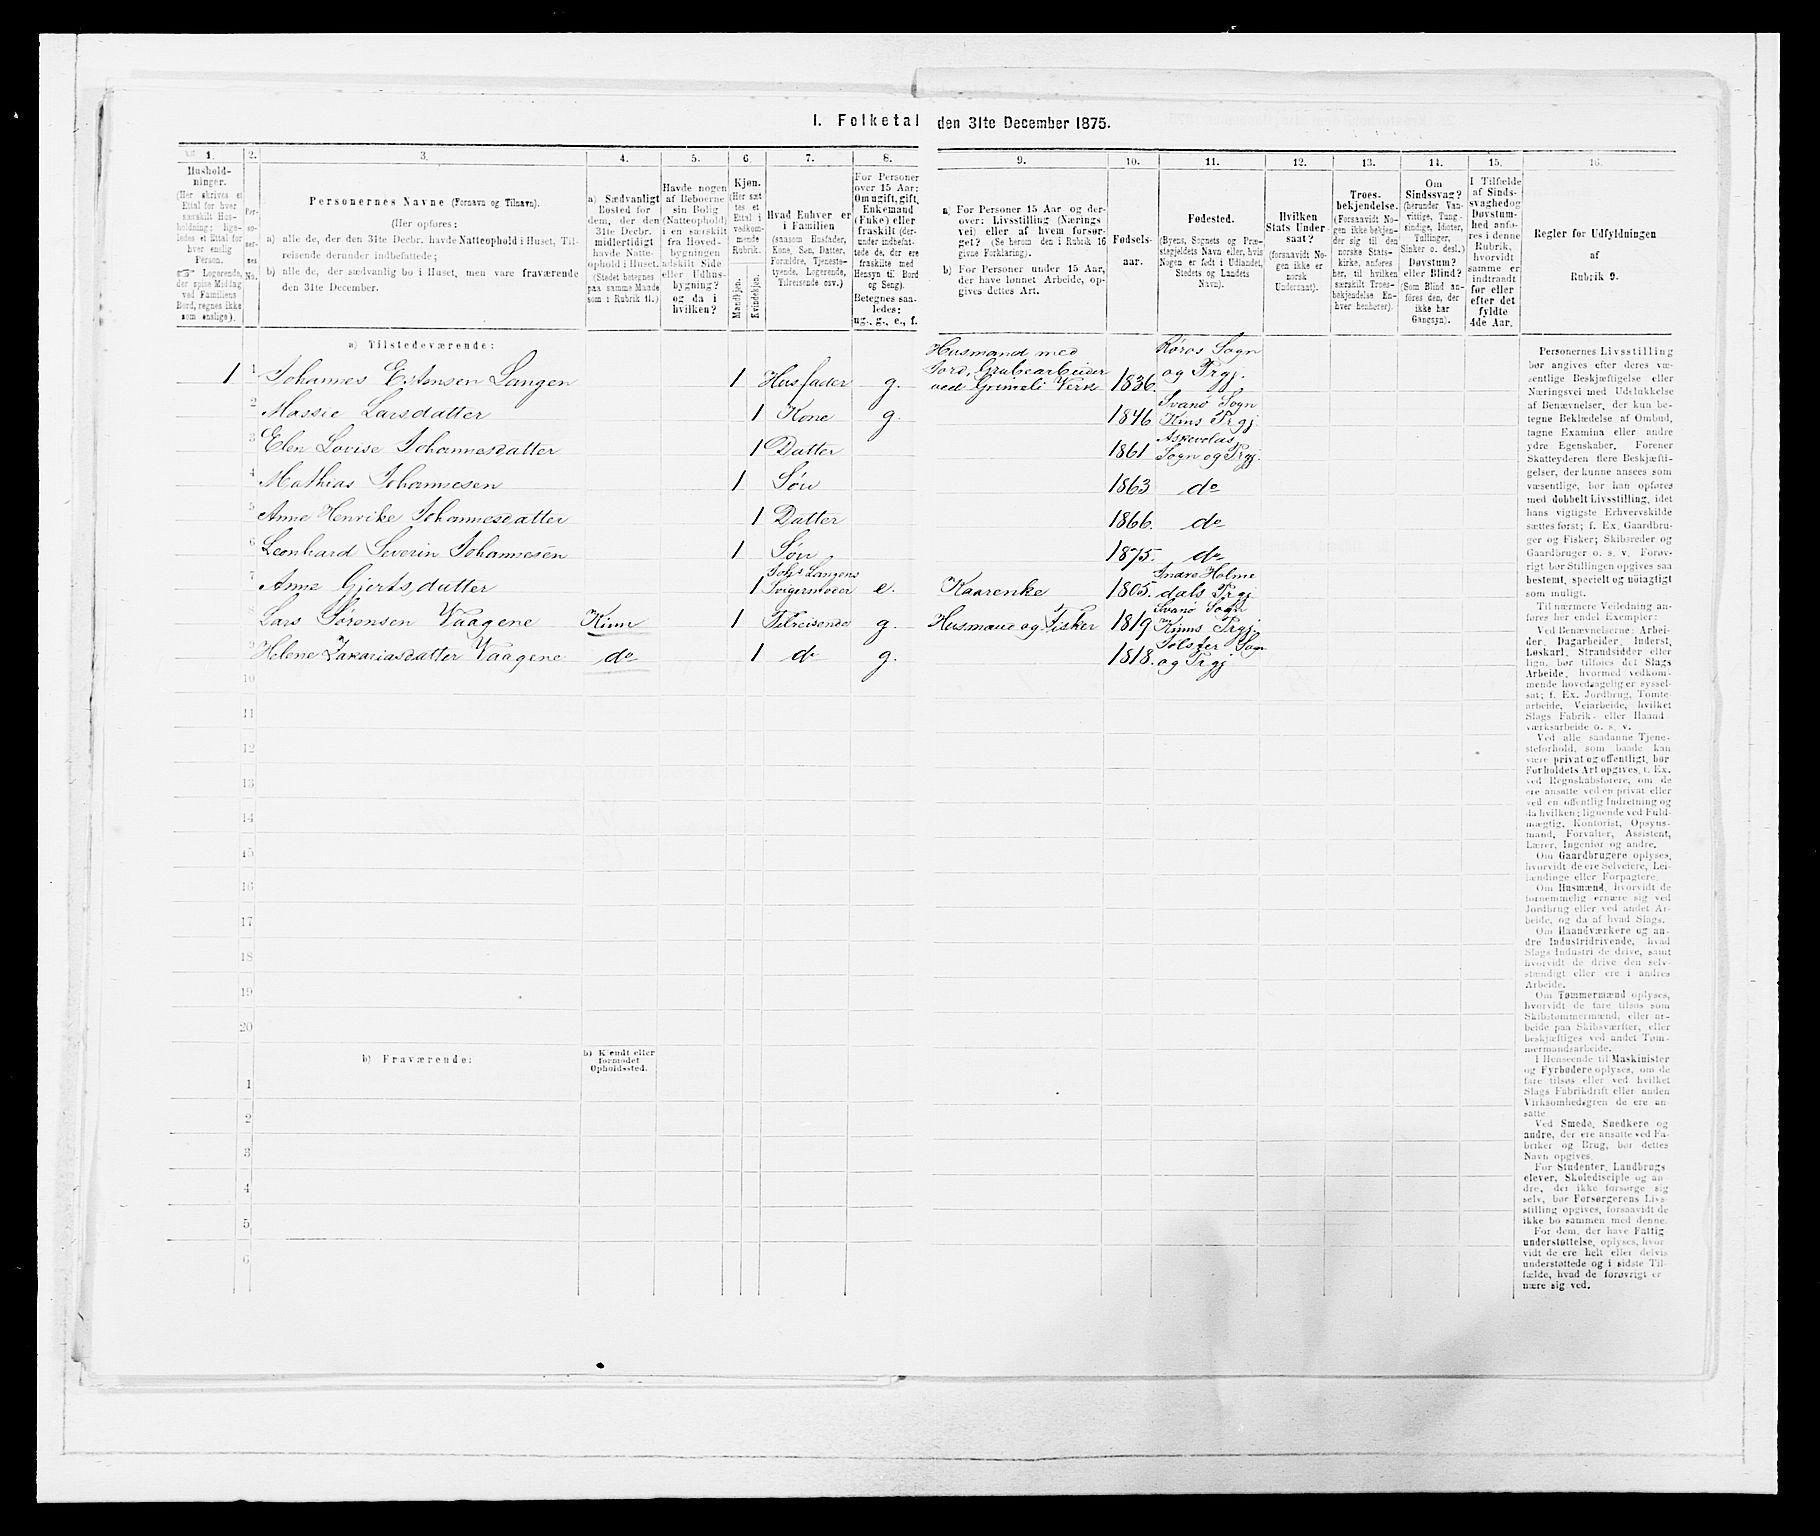 I. Folketal den 31te December 1875.
1. 2. 3. 4. 5. 6. 7. 8. 9. 10. 11. 12. 13. 14. 15. 16.
Hushold-
ninger.
(Her skrives et
Ettal for hver
særskilt Hus-
holdning; lige-
ledes et Ettal for
hver enslig
Person.
☞ Logerende,
der spise Middag
ved Familiens
Bord, regnes ikke
som enslige).
Per-
so-
ner-
nes
No.
Personernes Navne (Fornavn og Tilnavn).
(Her opføres:
a) alle de, der den 31te Decbr. havde Natteophold i Huset, Til-
reisende derunder indbefattede;
b) alle de, der sædvanlig bo i Huset, men vare fraværende
den 31te December.
a) Sædvanligt
Bosted for
dem, der den
31te Decbr.
midlertidigt
havde Natte-
ophold i Huset.
(Stedet betegnes
paa samme Maade
som i Rubrik 11.)
Havde nogen
af Beboerne
sin Bolig
(Natteophold)
i en særskilt
fra Hoved-
bygningen
adskilt Side
eller Udhus-
bygning?
og da i
hvilken?
Kjøn.
(Her sæt
tes et
Ettal i
vedkom-
mende
Rubrik.
Mandkjøn.
Kvindekjøn.
Hvad Enhver er
i Familien
(saasom Husfader,
Kone, Søn, Datter,
Forældre, Tjeneste-
tyende, Logerende,
Tilreisende osv.)
For Personer
over 15 Aar:
Om ugift, gift,
Enkemand
(Enke) eller
fraskilt (der-
under indbefat-
tede de, der ere
fraskilte med
Hensyn til Bord
og Seng).
Betegnes saa-
ledes:
ug., g., e., f.
a) For Personer 15 Aar og der-
over: Livsstilling (Nærings-
vei) eller af hvem forsør-
get? (Se herom den i Rubrik 16
givne Forklaring).
b) For Personer under 15 Aar,
der have lønnet Arbeide, op-
gives dettes Art.
Fødsels-
aar.
Fødested.
(Byens, Sognets og Præ-
stegjeldets Navn eller, hvis
Nogen er født i Udlandet,
Stedets og Landets
Navn).
Hvilken
Stats Under-
saat?
(forsaavidt No-
gen ikke er
norsk
Undersaat).
Troes-
bekjendelse.
(Forsaavidt No-
gen ikke bekjen-
der sig til den
norske Stats-
kirke, anføres
her, til hvilken
særskilt Troes-
bekjendelse En-
hver henhører).
Om
Sindssvag?
(herunder Van-
vittige, Tung-
sindige, Idioter,
Tullinger,
Sinker o. desl.).
Døvstum?
eller Blind?
(Som Blind an-
føres den, der
ikke har
Gangsyn).
I Tilfælde
af Sinds-
svaghed og
Døvstum-
hed anfø-
res i denne
Rubrik,
hvorvidt
samme er
indtraadt
før eller
efter det
fyldte
4de Aar.
Regler for Udfyldningen
af
Rubrik 9.
a) Tilstedeværende:
1 1 Johannes Estensen Langen 1 Husfader g. Husmand med Jord, Grubearbeider ved Grimeli Verk 1836. Røros Sogn og Prgj.
2 Massie Larsdatter 1 Kone g. 1846 Svanø Sogn Kins Prgj.
3 Elen Lovise Johannesdatter 1 Datter 1861 Askevolds Sogn og Prgj.
4 Mathias Johannesen 1 Søn 1863 do
5 Anne Henrike Johannesdatter 1 Datter 1866. do
6 Leonhard Severin Johannesen 1 Søn 1875. do
7 Anne Gjertsdatter 1 Johs Langens Svigermoder e. Kaarenke 1805. Indre Holmedals Prgj.
8 Lars Sørensen Vaagene Kinn 1 Tilreisende g. Husmand og Fisker 1819 Svanø Sogn Kinns Prgj.
9 Helene Zakariasdatter Vaagene do 1 do g. 1818. Jølster Sogn og Prgj
10
11
12
13
14
15
16
17
18
19
20
b) Fraværende:
b) Kjendt eller
formodet
Opholdssted.
1
2
3
4
5
6
Personernes Livsstilling
bør angives efter deres væ-
sentlige Beskjæftigelse eller
Næringsvei med Udelukkelse
af Benævnelser, der kun be-
tegne Beklædelse af Ombud,
tagne Examina eller andre
ydre Egenskaber. Forener
Skatteyderen flere Beskjæfti-
gelser, der kunne ansees som
væsentlige, bør han opføres
med dobbelt Livsstilling, idet
hans vigtigste Erhvervskilde
sættes først; f. Ex. Gaardbru-
ger og Fisker; Skibsreder og
Gaardbruger o. s. v. Forøv-
rigt bør Stillingen opgives saa
bestemt, specielt og nøiagtigt
som muligt.
Til nærmere Veiledning an-
føres her endel Exempler:
Ved Benævnelserne: Arbei-
der, Dagarbeider, Inderst,
Løskarl, Strandsidder eller
lign. bør tilføies det Slags
Arbeide, hvormed vedkom-
mende hovedsagelig er syssel-
sat; f. Ex. Jordbrug, Tomte-
arbeide, Veiarbeide, hvilket
Slags Fabrik- eller Haand-
værksarbeide o. s. v.
Ved alle saadanne Tjene-
steforhold, som baade kan
være privat og offentligt, bør
Forholdets Art opgives, t. Ex.
ved Regnskabsførere, om de
ere ansatte ved en privat eller
ved en offentlig Indretning og
da hvilken; lignende ved Fuld-
mægtig, Kontorist, Opsyns-
mand, Forvalter, Assistent,
Lærer, Ingeniør og andre.
Om Gaardbrugere oplyses,
hvorvidt de ere Selveiere, Lei-
lændinge eller Forpagtere.
Om Husmænd, hvorvidt de
fornemmelig ernære sig ved
Jordbrug eller ved andet Ar-
beide, og da af hvad Slags.
Om Haandværkere og an-
dre Industridrivende, hvad
Slags Industri de drive, samt
hvorvidt de drive den selv-
stændigt eller ere i andres
Arbeide.
Om Tømmermænd oplyses,
hvorvidt de fare tilsøs som
Skibstømmermænd, eller ar-
beide paa Skibsværfter, eller
beskjæftiges ved andet Tøm-
mermandsarbeide.
I Henseende til Maskinister
og Fyrbødere oplyses, om de
fare tilsøs eller ved hvilket
Slags Fabrikdrift eller anden
Virksomhedsgren de ere an-
satte.
Ved Smede, Snedkere og
andre, der ere ansatte ved Fa-
briker og Brug, bør dettes
Navn opgives.
For Studenter, Landbrugs-
elever, Skoledisciple og an-
dre, der ikke forsørge sig
selv, bør Forsørgerens Livs-
stilling opgives, forsaavidt de
ikke bo sammen med denne.
For dem, der have Fattig-
understøttelse, oplyses, hvor-
vidt de ere helt eller delvis
understøttede og i sidste Til-
fælde, hvad de forøvrigt er-
nære sig ved.